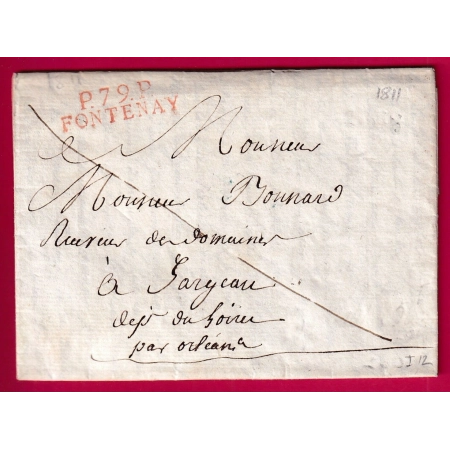 P.79.P.
FONTENAY
1811
Monsieur
Monsieur Bonnard
Receveur des domaines
à Jargeau
dept du Loiret
par orléans
J 12